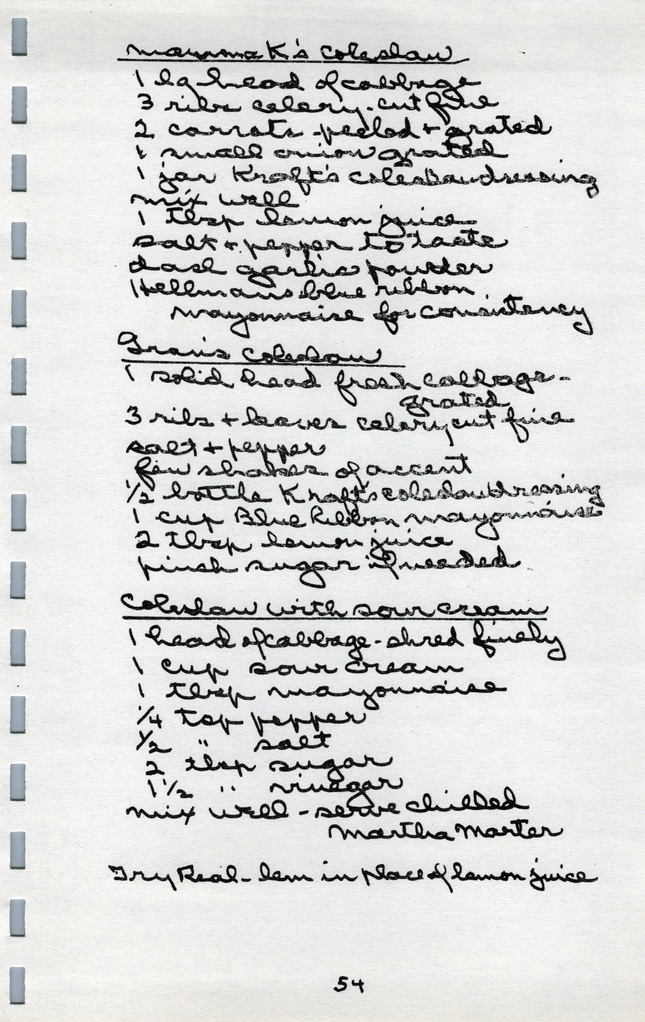 Mamma K's Coleslaw
1 lg head of cabbage
3 ribs celery-cut fine
2 carrots-peeled + grated
1 small onion grated
1 jar Kraft's coleslaw dressing
mix well
1 tbsp lemon juice
salt + pepper to taste
dash garlic powder
Hellmans blue ribbon
mayonnaise for consistency
Fran's Coleslaw
1 solid head fresh cabbage-
grated
3 ribs + leaves celery cut fine
salt + pepper
few shakes of accent
1/2 bottle Kraft's coleslaw dressing
1 cup Blue Ribbon mayonnaise
2 tbsp lemon juice
pinch sugar if needed
Coleslaw with sour cream
1 head of cabbage-shred finely
1 cup sour cream
1 tbsp mayonnaise
1/4 tsp pepper
1/2 " salt
2 tbsp sugar
1 1/2 " vinegar
mix well - serve chilled
Martha Marter
Try Real-lem in place of lemon juice
54